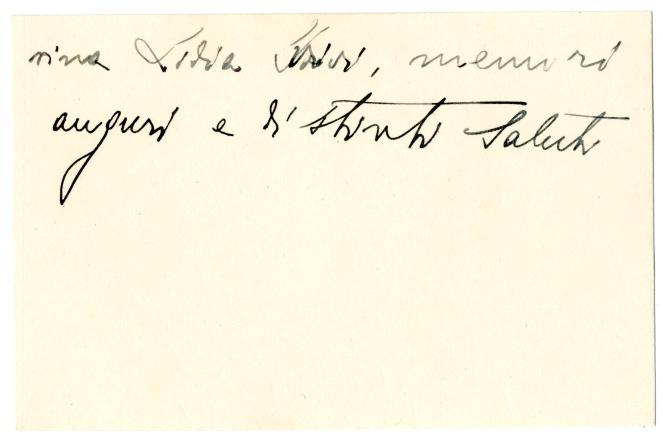 rina Lidia memori
auguri e distinti Saluti